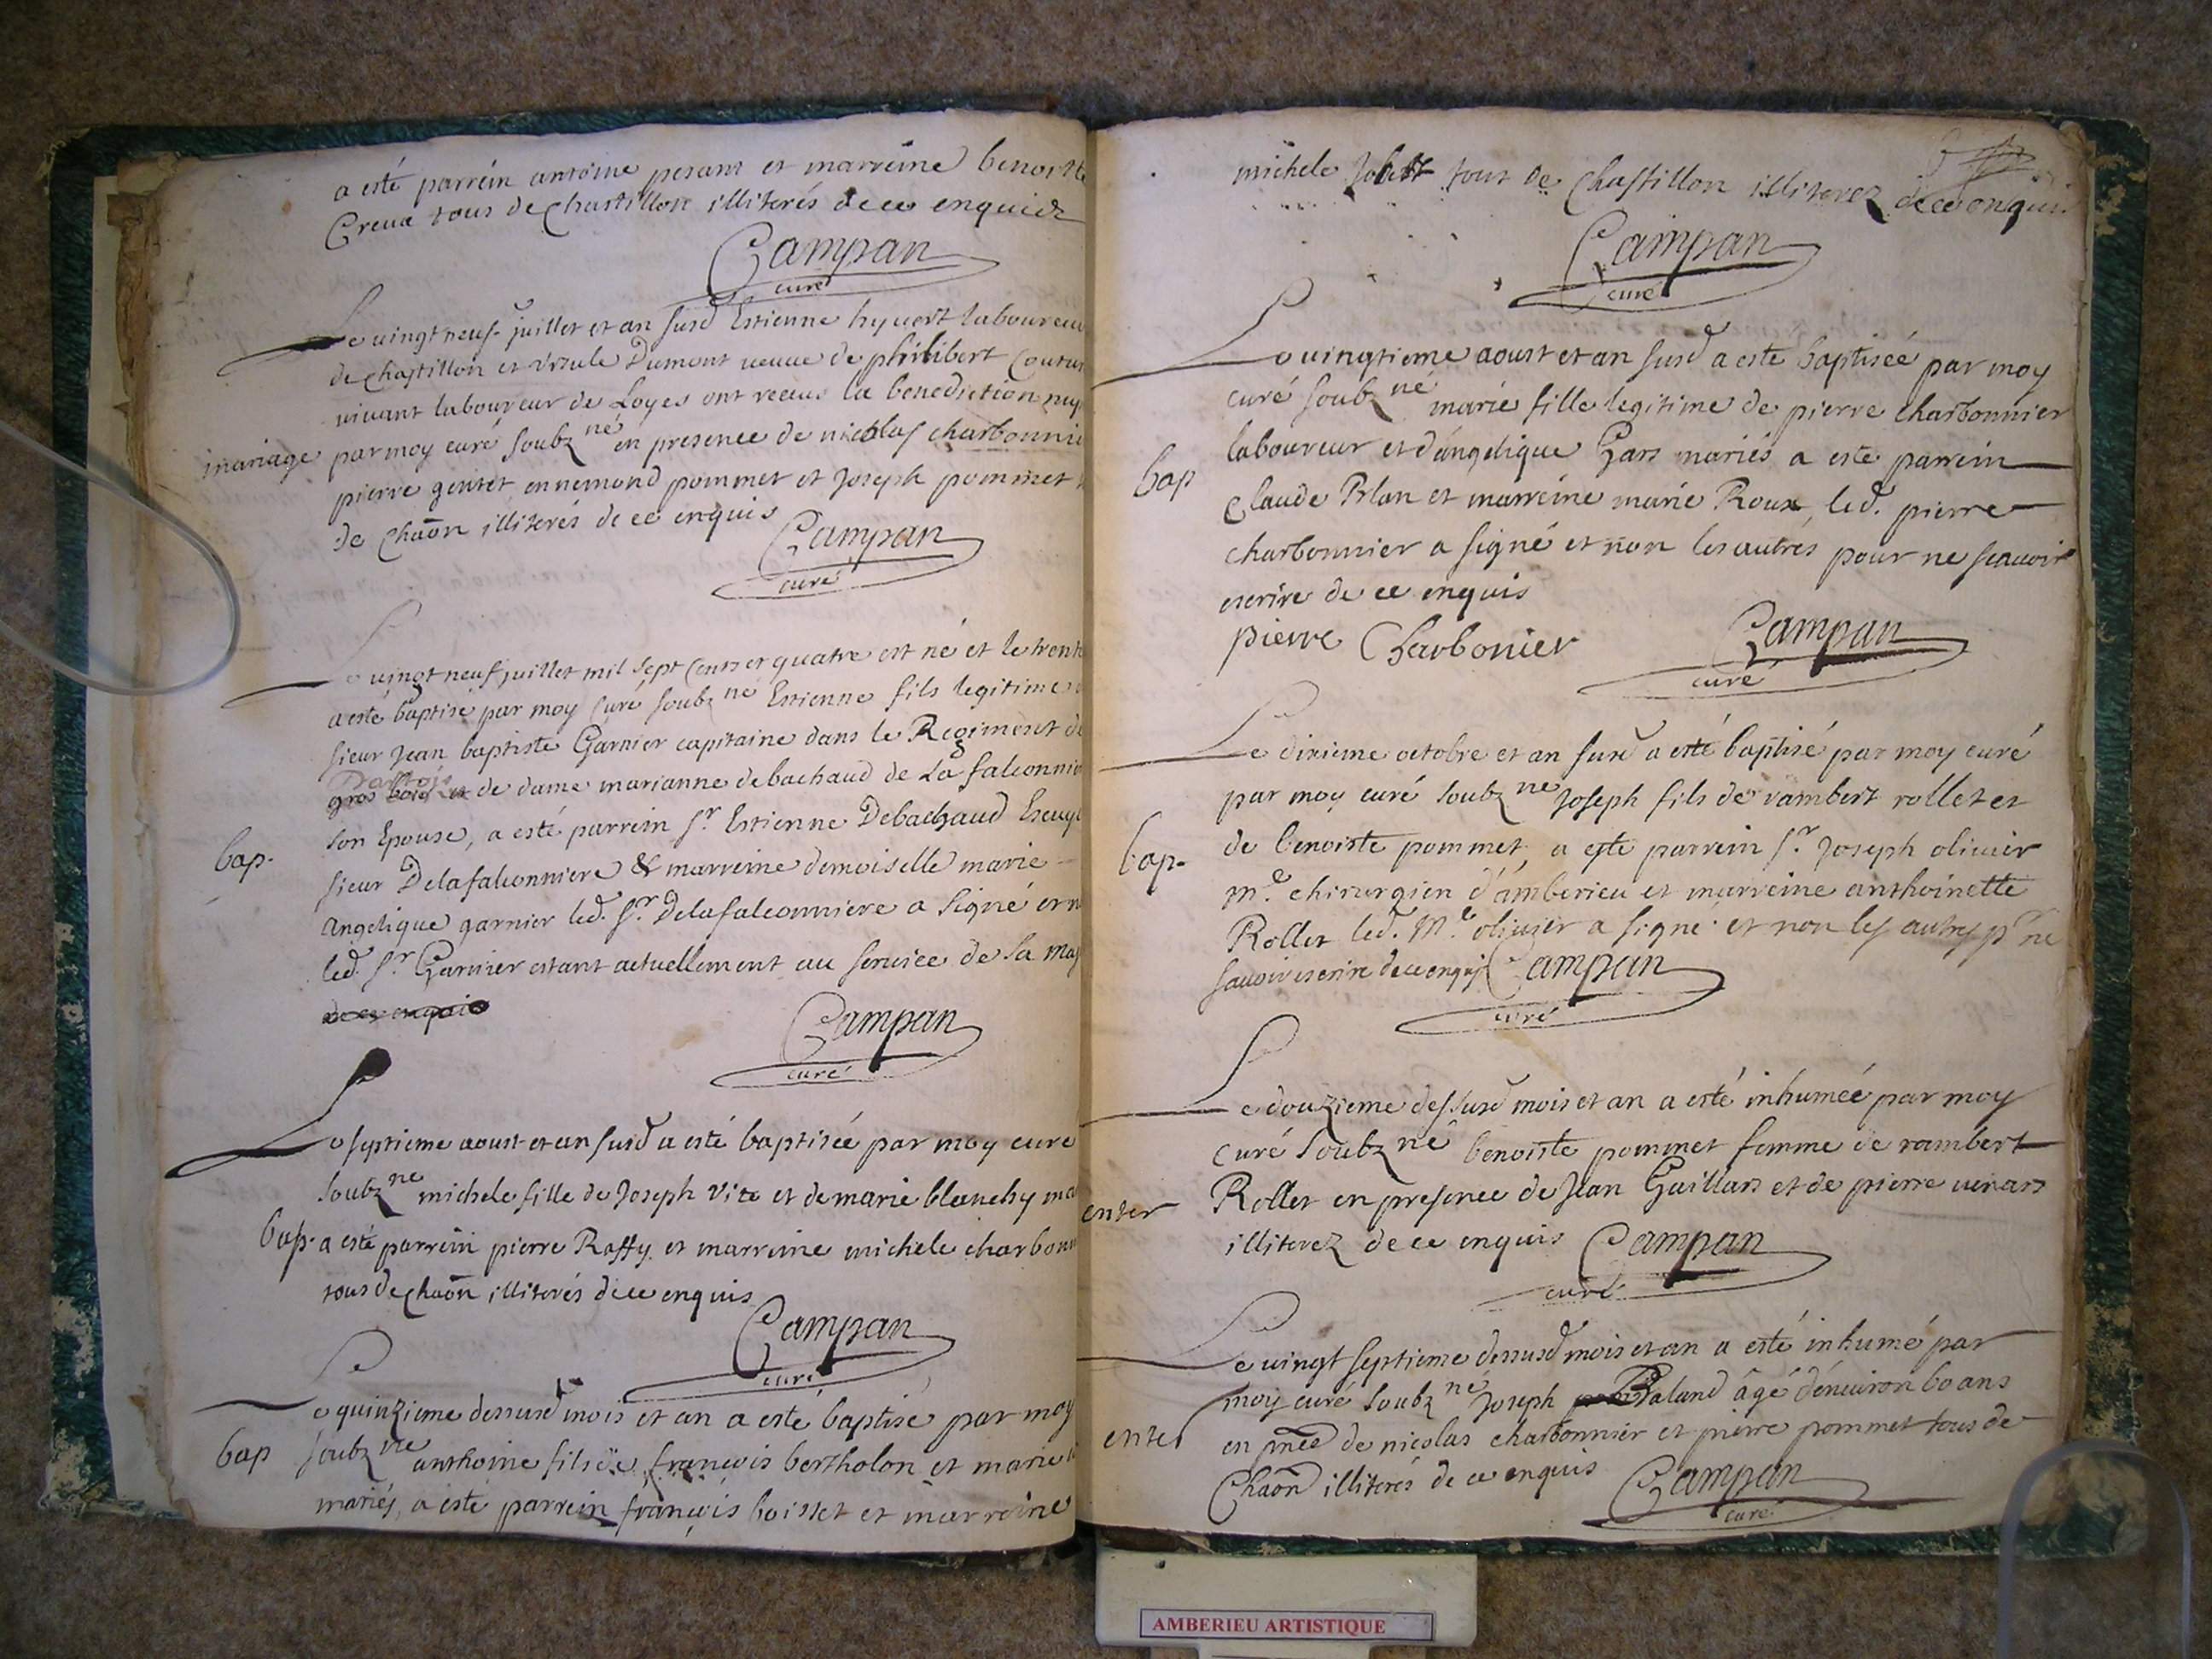 a esté parrein antoine pesant et marreine benoiste
Creua tous de Chastillon illiterés de ce enquis
Campan
curé
Le vingt neuf juillet et an susd Estienne hyvert laboureur
de Chastillon et Vrsule Dumont veuve de philibert
vivant laboureur de Loyes ont receus la benediction
mariage
par moy curé soubz né en presence de nicolas charbonnier
pierre gentet ennemond pommet et Joseph pommet
de Chaon illiterés de ce enquis
Campan
curé
Le vingt neuf juillet mil sept Cents et quatre est né et le trente
a esté baptisé par moy Curé soubz né Estienne fils legitime
sieur Jean baptiste Garnier capitaine dans le Regiment de
et de dame marianne debachaud de La falconniere
son Epouse, a esté parrein sr. Estienne Debachaud Escuye
bap.
sieur Delafalconniere & marreine demoiselle marie
angelique garnier led. sr. Delafalconniere a signé et n
led. sr. Garnier estant actuellement au service de sa maj
de ce enquis
Campan
curé
Le septieme aoust et an susd a esté baptisée par moy curé
soubz né michele fille de Joseph Vite et de marie blanchy ma
bap.
a esté parrein pierre Raffy et marreine michele charbonn
tous de Chaon illiterés de ce enquis
Campan
curé
Le quinzieme dessusd mois et an a esté baptisé par moy
bap
soubz né anthoine fils de françois bertholon et marie
mariés, a esté parrein françois boisset et marreine
michele Jobett tout de Chastillon illiterez de ce enquis
Campan
curé
Le vingtieme aoust et an susd a esté baptisée par moy
curé soubz né marie fille legitime de pierre charbonnier
bap
laboureur et d'angelique Gars mariés a esté parrein
Claude Prlan et marreine marie Roux, led. pierre
charbonnier a signé et non les autres pour ne scauoir
escrire de ce enquis
pierre Charbonier
Campan
curé
Le dixieme octobre et an susd a esté baptisé par moy curé
par moy curé soubz né Joseph fils de rambert rollet et
bap.
de benoiste pommet, a esté parrein sr. Joseph oliuier
me. chirurgien d'amberieu et marreine anthoinette
Rollet led. Me. oliuier a signé et non les autres pr ne
sauoir escrire de ce enquis
Campan
curé
Le douzieme dessusd mois et an a esté inhumée par moy
curé soubz né benoiste pommet femme de rambert
enter
Rollet en presence de Jean Guillars et de pierre uinars
illiterez de ce enquis
Campan
curé
Le vingt septieme dessusd mois et an a esté inhumé par
moy curé soubz né Joseph Baland âgé d'enuiron 60 ans
enter
en pnce de nicolas charbonnier et pierre pommet tous de
Chaon illiterés de ce enquis
Campan
curé
AMBERIEU ARTISTIQUE